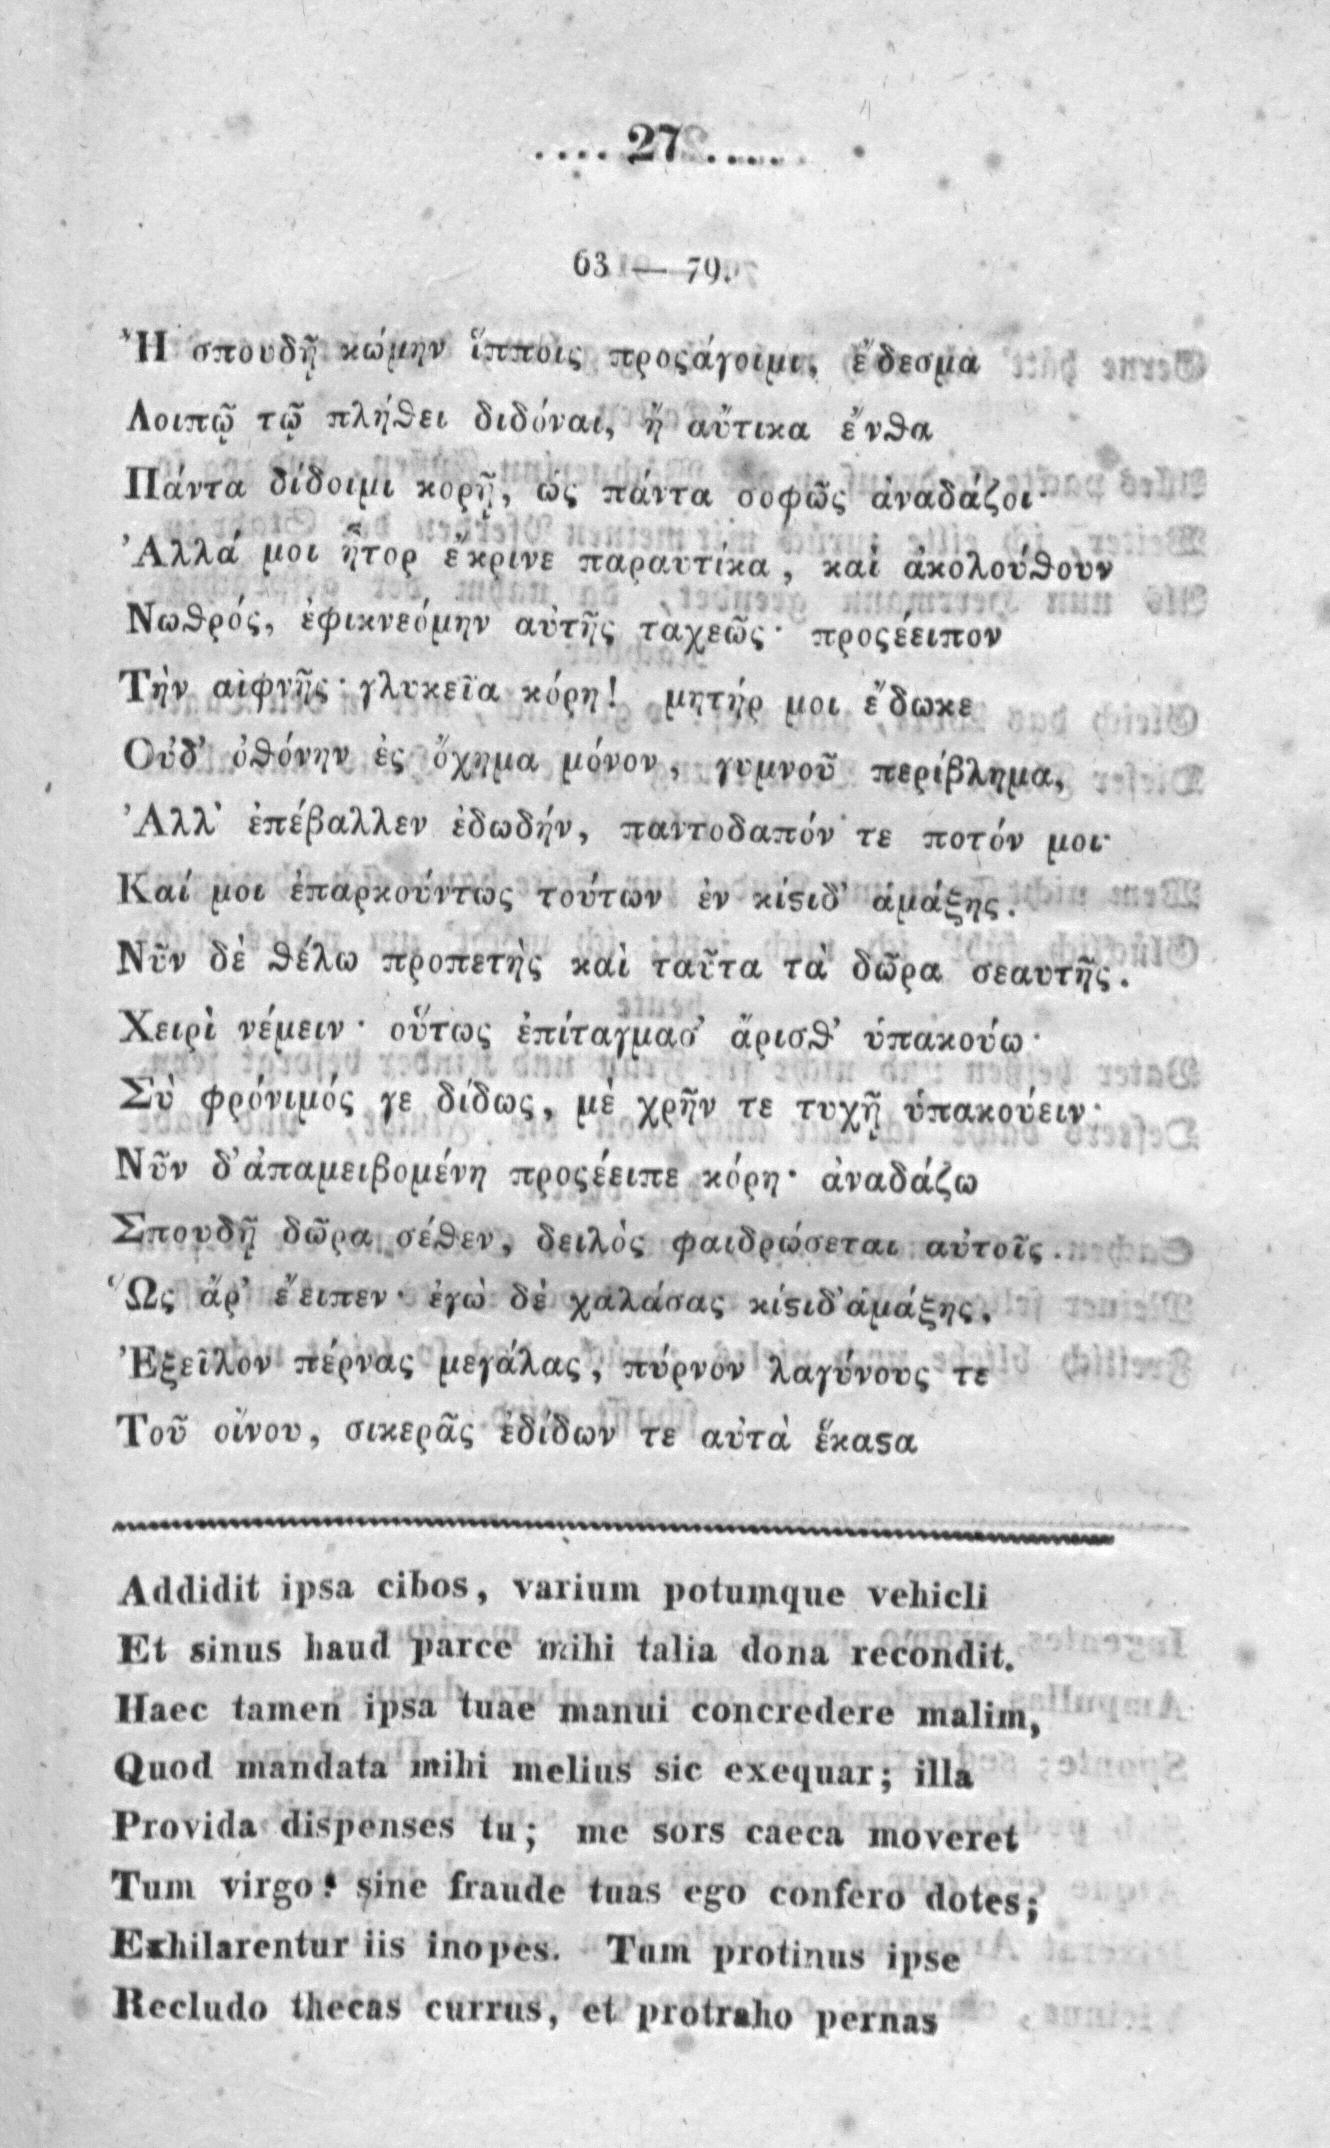 .... 27 .....
63 — 79.
Ἢ σπουδῇ κώμην ἵπποις προςάγοιμι, ἔδεσμα
Λοιπῷ τῷ πλήϑει διδόναι, ἤ αὔτικα ἔνϑα
Πάντα δίδοιμι κορῇ, ὡς πάντα σοφῶς ἀναδάζοι·
Ἀλλά μοι ἦτορ ἔκρινε παραυτίκα, καὶ ἀκολούϑουν
Νωϑρός, ἐφικνεόμην αὐτῆς ταχεῶς· προςέειπον
Τὴν αἰφνῆς· γλυκεῖα κόρη! μητήρ μοι ἔδωκε
Οὐδ' ὀϑόνην ἐς ὄχημα μόνον, γυμνοῦ περίβλημα,
Ἀλλ' ἐπέβαλλεν ἐδωδήν, παντοδαπόν τε ποτόν μοι·
Καί μοι ἐπαρκούντως τούτων ἐν κίϛιδ' ἁμάξης.
Νῦν δὲ ϑέλω προπετὴς καὶ ταῦτα τὰ δῶρα σεαυτῆς.
Χειρὶ νέμειν· οὕτως ἐπίταγμασ' ἄρισϑ' ὑπακούω·
Σὺ φρόνιμός γε δίδως, μὲ χρῆν τε τυχῇ ὑπακούειν·
Νῦν δ'ἀπαμειβομένη προςέειπε κόρη· ἀναδάζω
Σπουδῇ δῶρα σέϑεν, δειλὸς φαιδρώσεται αὐτοῖς.
Ὥς ἄρ' ἔειπεν· ἐγὼ δὲ χαλάσας κίϛιδ'ἁμάξης,
Ἐξεῖλον πέρνας μεγάλας, πύρνον λαγύνους τε
Τοῦ οἴνου, σικερᾶς ἐδίδων τε αὐτὰ ἕκαϛα
Addidit ipsa cibos, varium potumque vehicli
Et sinus haud parce mihi talia dona recondit.
Haec tamen ipsa tuae manui concredere malim,
Quod mandata mihi melius sic exequar; illa
Provida dispenses tu; me sors caeca moveret
Tum virgo: sine fraude tuas ego confero dotes;
Exhilarentur iis inopes. Tum protinus ipse
Recludo thecas currus, et protraho pernas